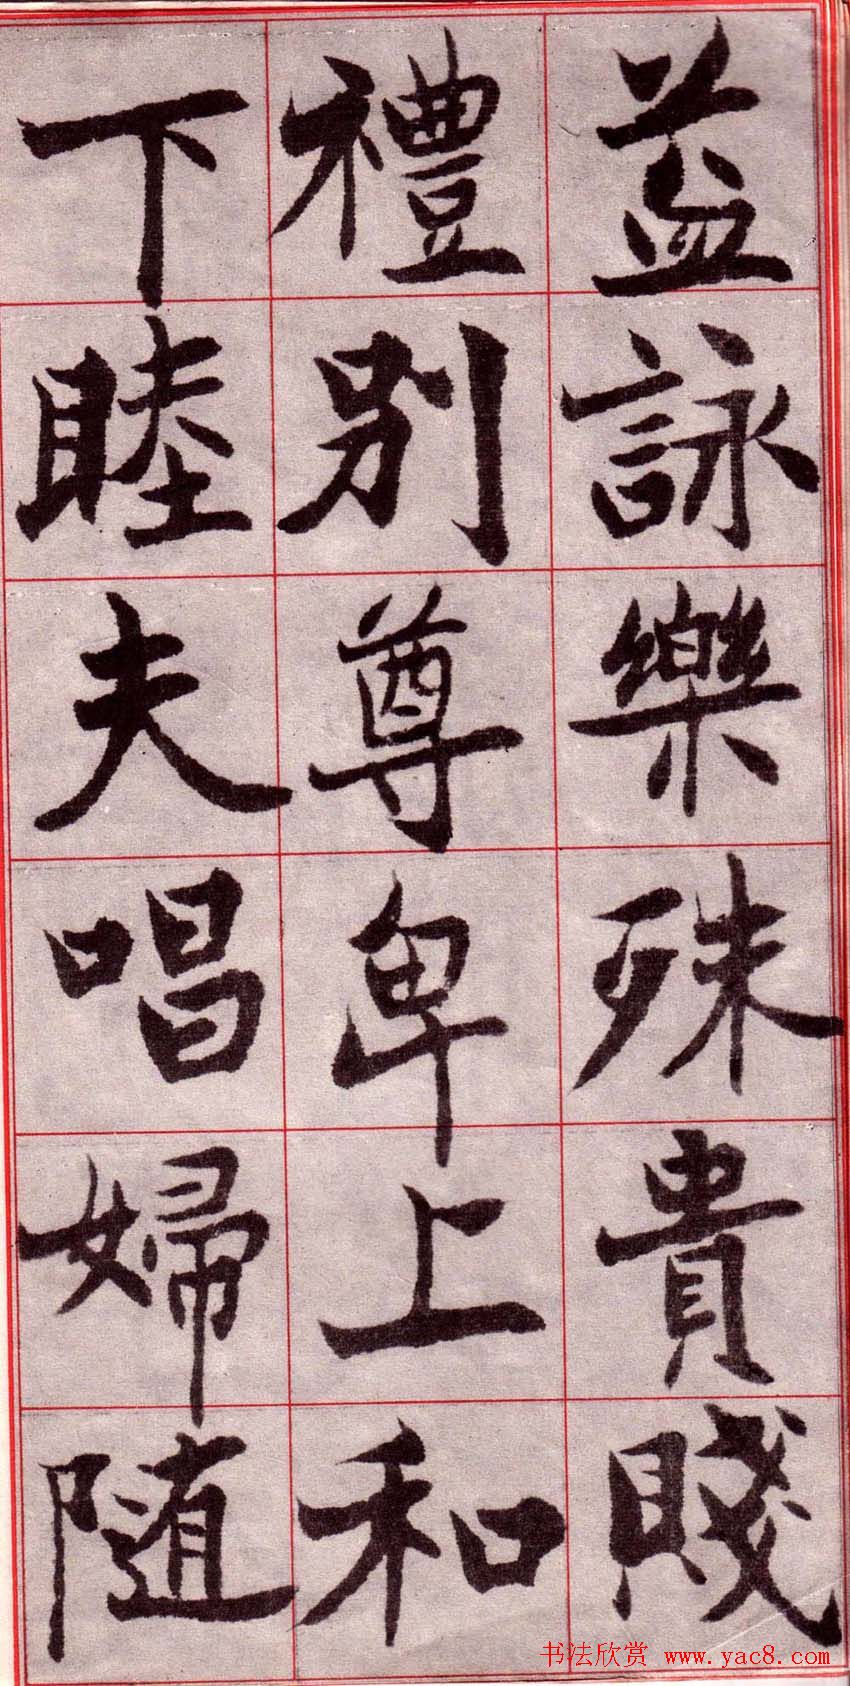 益詠樂殊貴賤
禮別尊卑上和
下睦夫唱婦随
书法欣赏 www.yac8.com